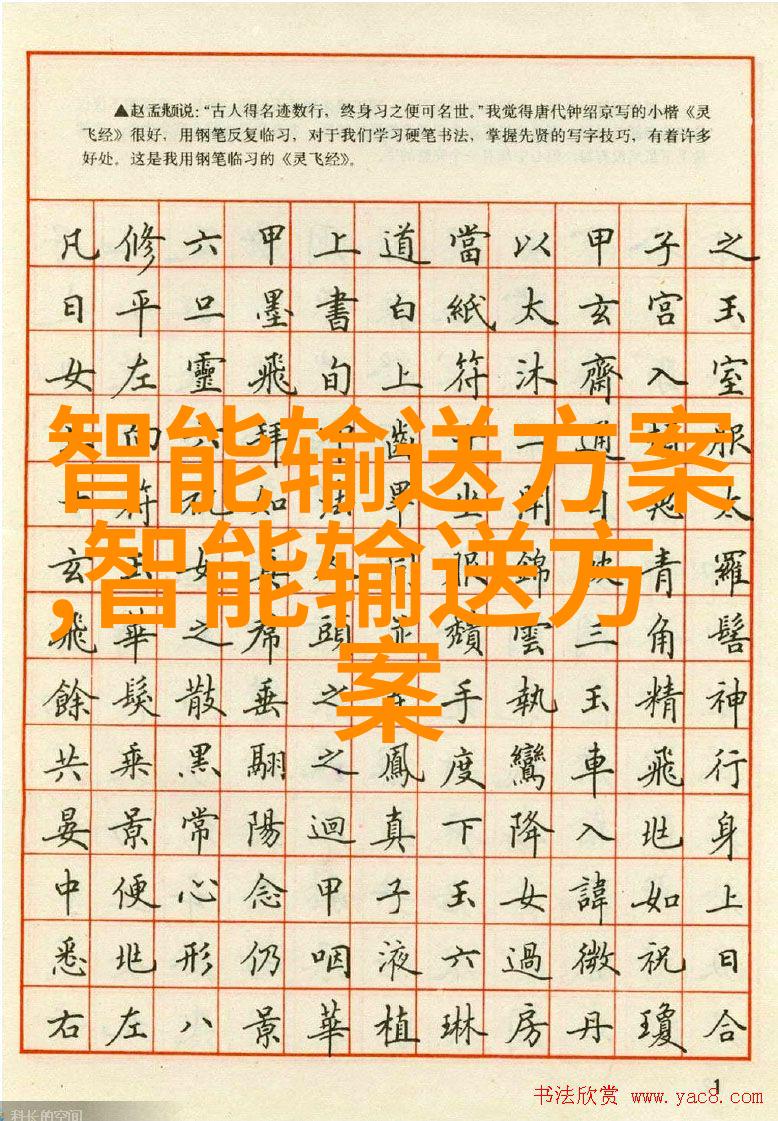 ▲赵孟頫说：“古人得名迹数行，终身习之便可名世。”我觉得唐代钟绍京写的小楷《灵
飞经》很好，用钢笔反复临习，对于我们学习硬笔书法，掌握先贤的写字技巧，有着许多
好处。这是我用钢笔临习的《灵飞经》。
凡修六甲上道當以甲子之
日平旦墨書白紙太玄宮玉
女左靈飛旬上符沐齋入室
向六拜齒二通服
符如畢坐開太
玄玉女同服錦青羅
飛華之頭雲三角髻
餘髮散垂之手執玉精神
共乘黑翮之鳳度鸞車飛行
晏景常陽迴真下降入北身
中便心念甲子玉女諱如上
悉北形仍咽液六過微祝日
右左八景華植琳房丹瓊合
智能输送方案
,智能输送方
案
1
书法欣赏 www.yac8.com
科长的空间